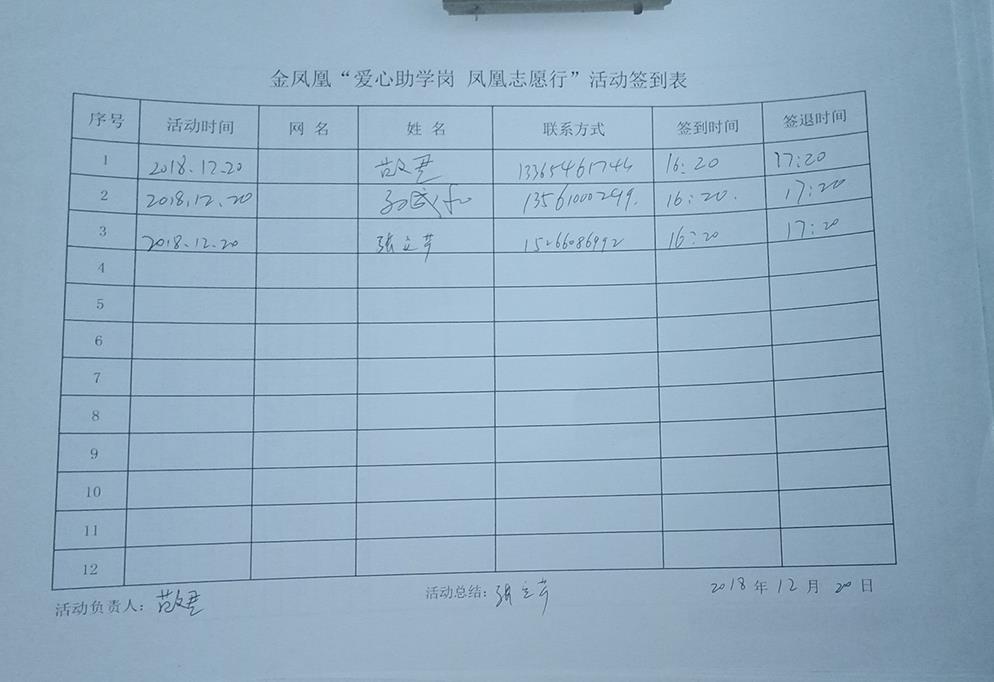 金凤凰“爱心助学岗 凤凰志愿行”活动签到表
序号 活动时间 网 名 姓 名 联系方式 签到时间 签退时间
1 2018.12.20 13365461744 16:20 17:20
2 2018.12.20 13561000299. 16:20. 17:20
3 2018.12.20 张立芹 15266086992 16:20 17:20
4
5
6
7
8
9
10
11
12
活动负责人: 活动总结: 张立芹 2018 年 12 月 20 日